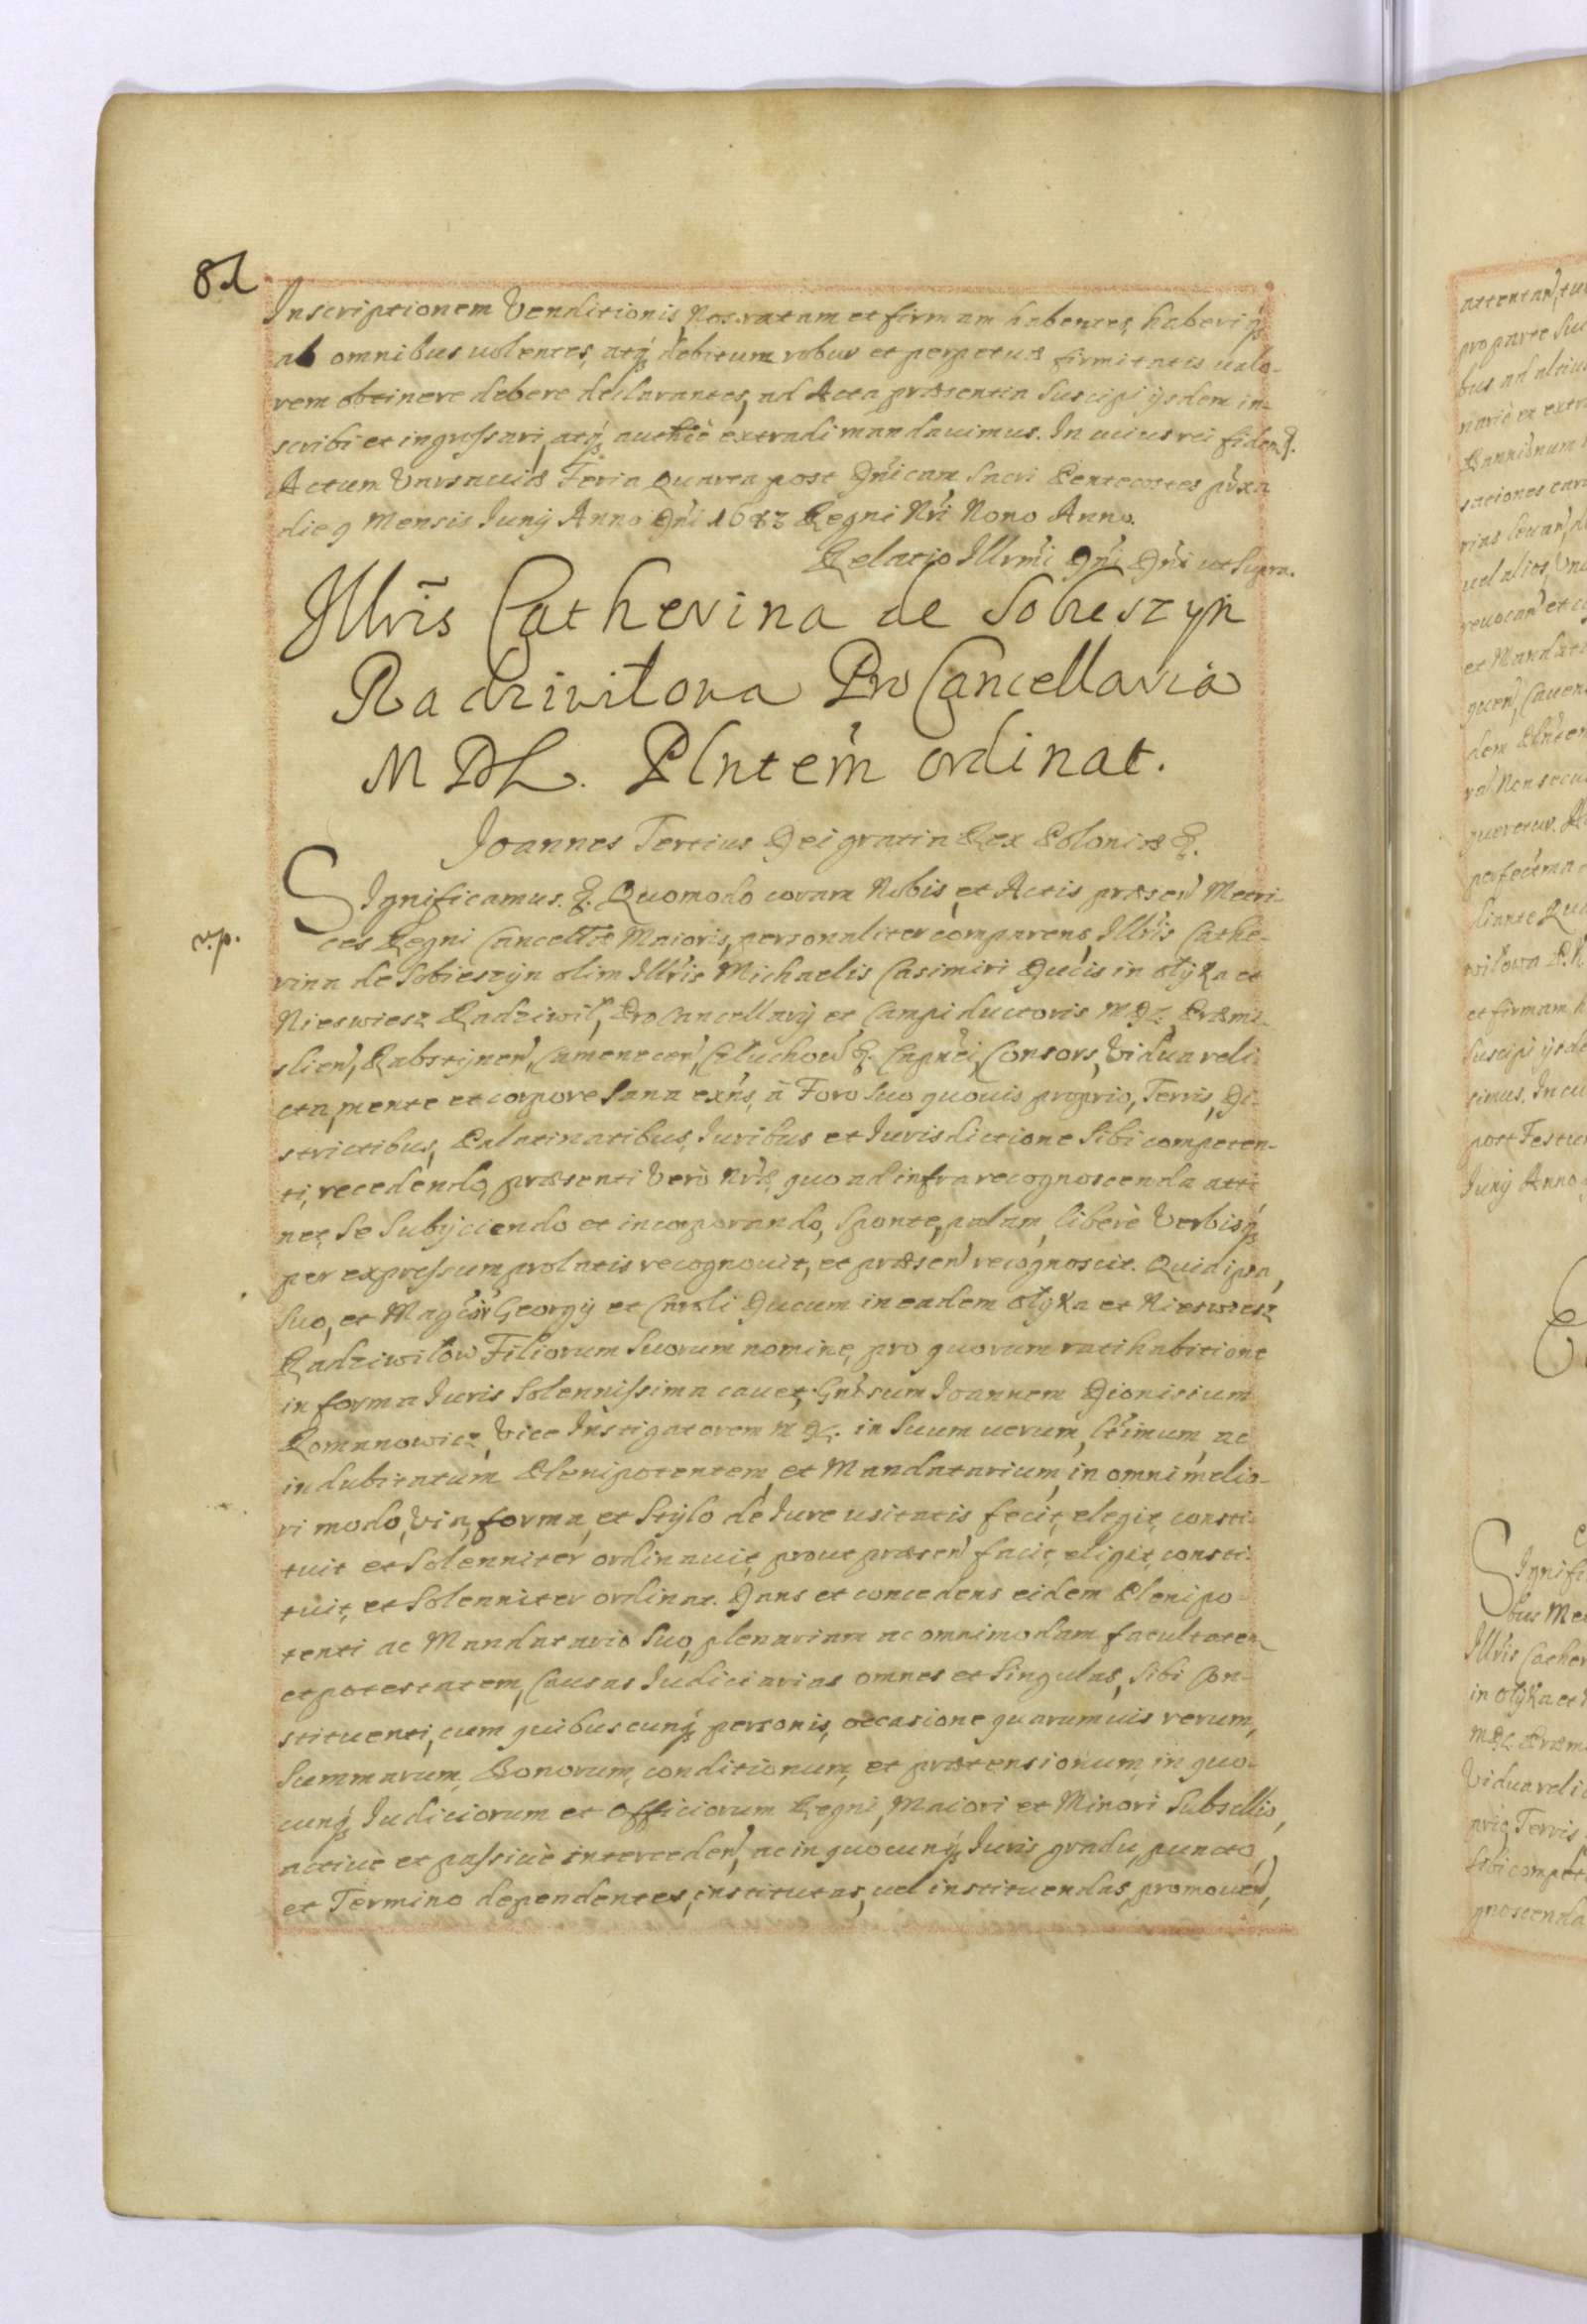 82
Inscriptionem Venditionis, Nos ratam et firmam habentes, haberiq́
ab omnibus uolentes, atq́ debitum robur et perpetuæ firmitatis ualo-
rem obtinere debere declarantes, ad Acta præsentia Suscipi ijsdem in-
scribi et ingrossari, atq́ authcè extradi mandauimus. In cuius rei fidem &.
Actum Varsauiæ Feria Quarta post Dnicam Sacri Pentecostes prxa
die 9 Mensis Iunij Anno Dni 1683 Regni Nri Nono Anno.
Relatio Illrmi Dni Dni ut Supra.
Illris Catherina de Sobieszyn
Radziwiłowa ProCancellaria
MDL. Plntem ordinat.
Joannes Tertius Dei gratia Rex Poloniæ &.
Significamus &. Quomodo coram Nobis, et Actis præsen Metri-
ces Regni Cancellæ Maioris, personaliter comparens, Illris Cathe-
rina de Sobieszyn olim Illris Michaelis Casimiri Ducis in Ołyka et
Nieswiesz Radziwił, ProCancellarij et Campiductoris MDL, Præmi-
slien, Rabsztynen, Camenecen, Człuchow &. Capnei, Consors, Vidua reli
cta, mente et corpore Sana exns, à Foro Suo quouis proprio, Terris, Di-
strictibus, Palatinatibus, Iuribus et Iurisdictione Sibi competen-
ti, recedendo, præsenti Verò Nræ, quo ad infra recognoscenda atti
net, Se Subijciendo et incorporando, Sponte, palam, liberè Verbisq́
per expressum prolatis recognouit, et præsen recognoscit. Quia ipsa,
Suo, et Magcor Georgij et Caroli Ducum in eadem Ołyka et Nieswiesz
Radziwiłow Filiorum Suorum nomine, pro quorum ratihabitione
in forma Iuris Solennissima cauet, Gnrsum Ioannem Dionisium
Romanowicz, Vice Instigatorem MDL. in Suum uerum, ltimum, ac
indubitatum Plenipotentem, et Mandatarium, in omni melio-
ri modo, Via, forma, et Stylo de Iure usitatis fecit, elegit, consti-
tuit et Solenniter ordinauit, prout præsen facit, eligit, consti-
tuit, et Solenniter ordinat. Dans et concedens eidem Plenipo-
tenti ac Mandatario Suo, plenariam ac omnimodam facultatem
et potestatem, Causas Iudiciarias omnes et Singulas, Sibi Con-
stituenti, cum quibuscunq́ personis, occasione quarumuis rerum,
Summarum, Bonorum, conditionum, et prætensionum, in quo-
cunq́ Iudiciorum et Officiorum Regni, Maiori et Minori Subsellio,
actiuè et passiuè interceden, ac in quocunq́ Iuris gradu, puncto,
et Termino dependentes, institutas, uel instituendas, promouen,
r.p.